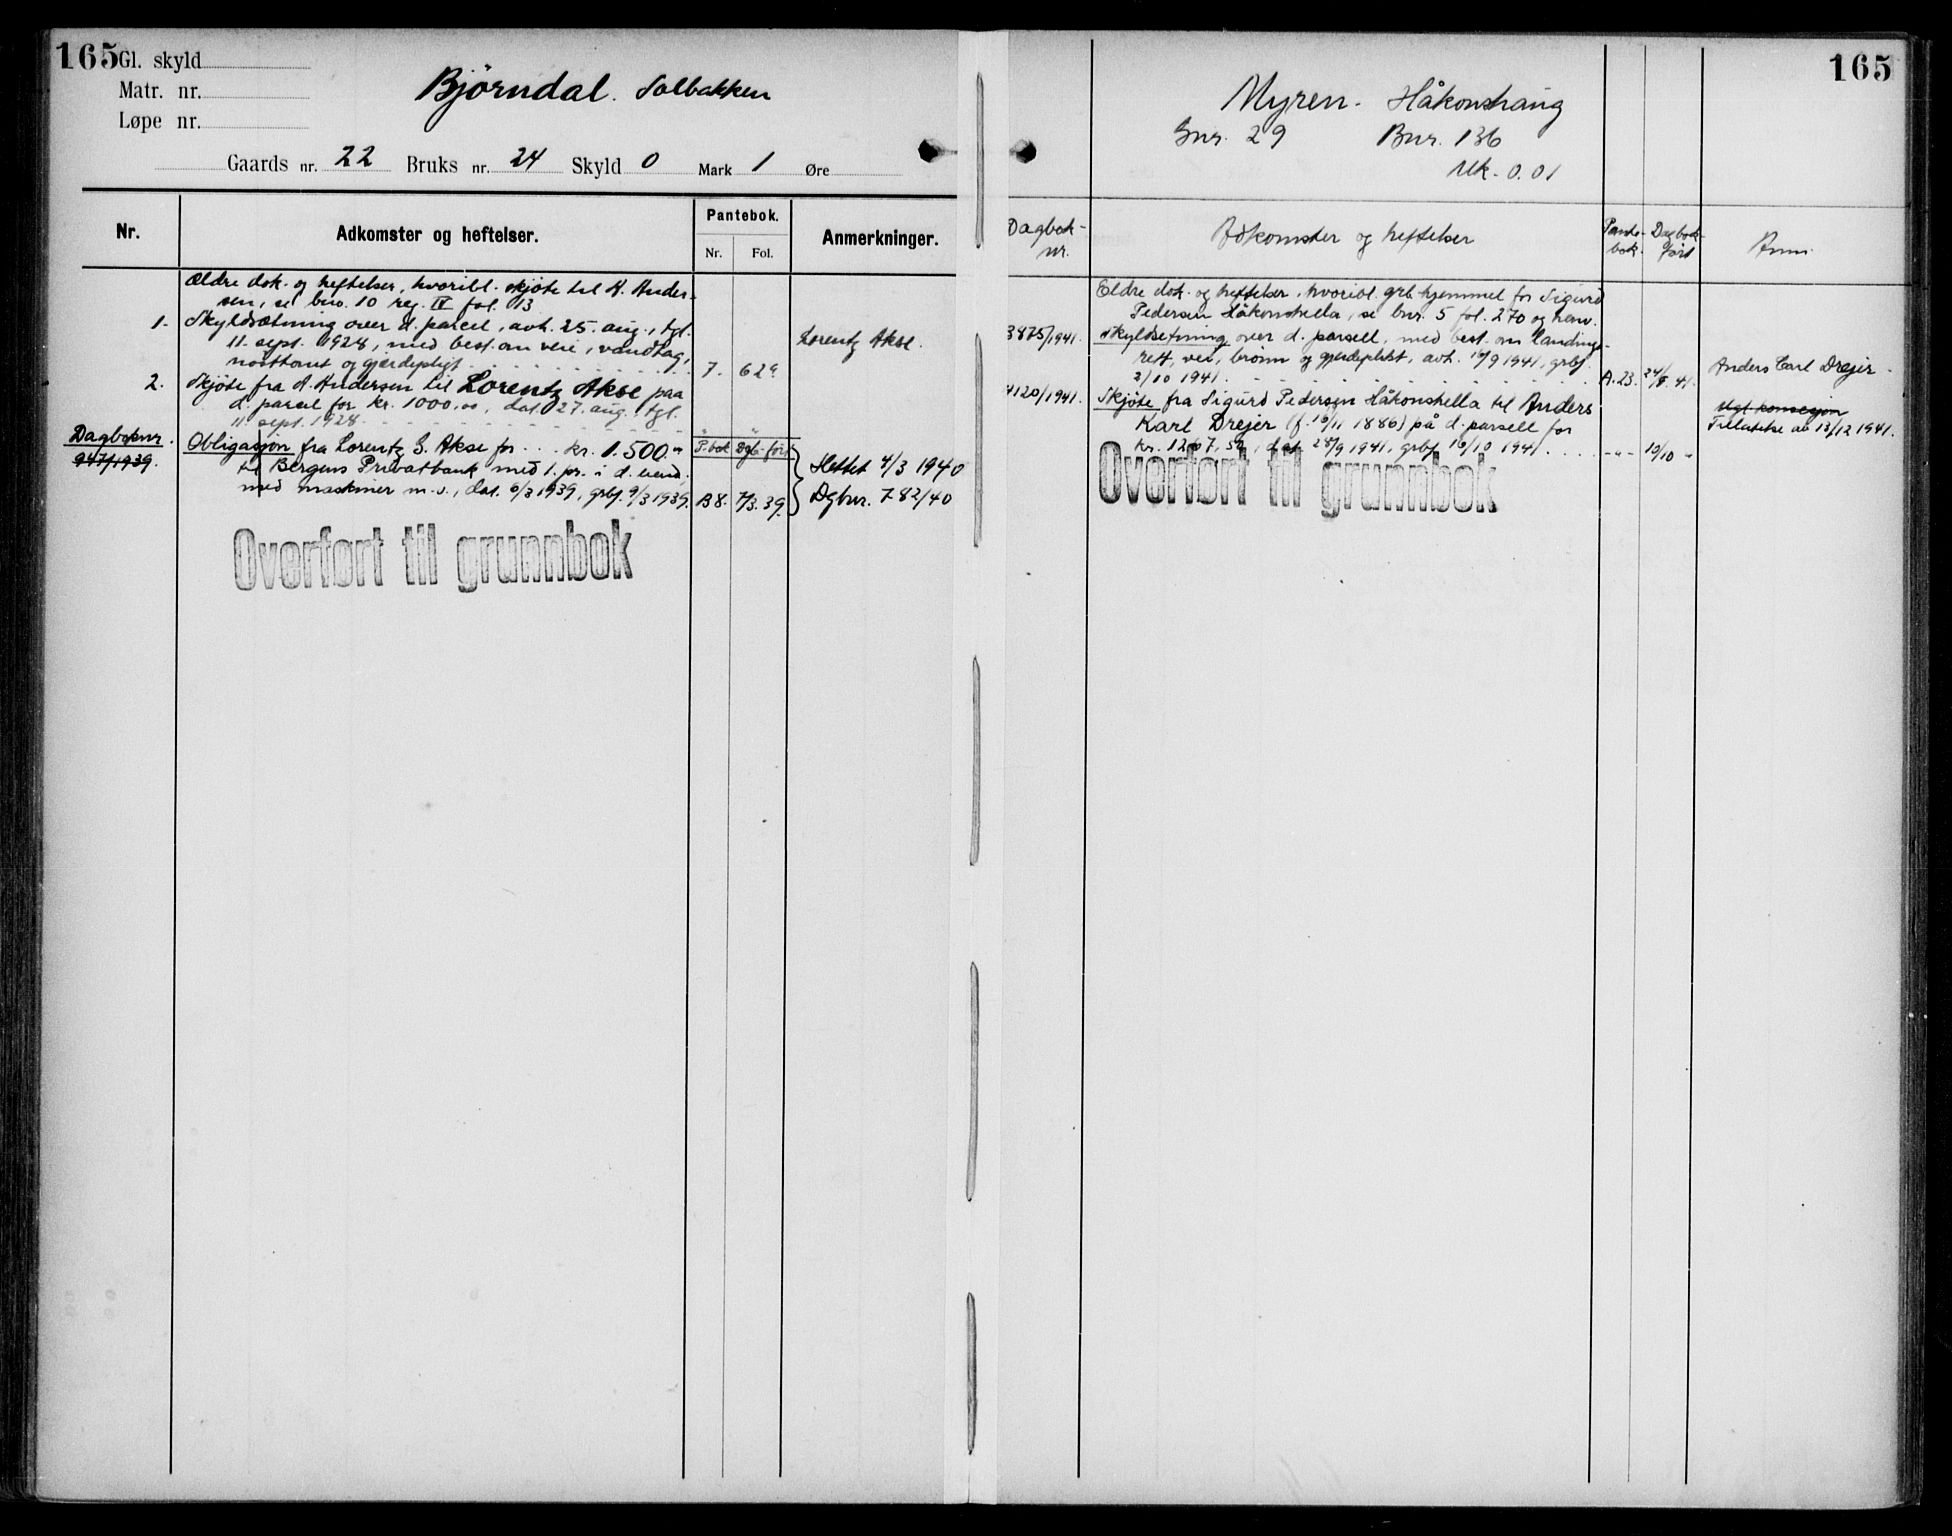 165 Gl. skyld
Matr. nr.
Løpe nr.
Bjørndal. Solbakken
Gaards nr. 22 Bruks nr. 24 Skyld 0 Mark 1 Øre
Nr. Adkomster og heftelser. Pantebok. Anmerkninger.
Nr. Fol.
Ældre dok. og heftelser, hvoribl. skjøte til A. Ander-
sen, se bno. 10 reg. IV fol. 13
1. Skyldsætning over d. parcel, avh. 25. aug., tgl.
11. sept. 1928, med best. om veie, vandtag,
nosttomt og gjerdepligt. 7. 629. Lorentz Akse.
2. Skjøte fra A. Andersen til Lorentz Akse paa
d. parcel for kr. 1000,00, dat. 27. aug., tgl.
11 sept. 1928. " "
Dagboknr. Obligasjon fra Lorentz S. Akse for . . . kr. 1.500.- P.bok Dgb.ført
947/1939. til Bergens Privatbank med 1. pr. i d. eiend.
med maskiner m.v., dat. 6/3 1939, grbf. 9/3 1939. B 8. 7/3. 39.
Slettet 4/3 1940
Dgbnr. 782/40
Overført til grunnbok
165
Myren. Håkonshaug
Gnr. 29 Bnr. 136
Mk. 0.01
Dagbok-
nr. Adkomster og heftelser Pante-
bok. Dagbok-
ført Anm.
Eldre dok. og heftelser, hvoribl. grb. hjemmel for Sigurd
Pedersen Håkonshella, se bnr. 5 fol. 270 og henv.
3875/1941. Skyldsetning over d. parsell, med best. om landings-
rett, vei, brønn og gjerdeplikt, avh. 10/9 1941, grbf.
2/10 1941. A. 23. 24/9. 41. Anders Carl Drejer.
4120/1941. Skjøte fra Sigurd Pedersen Håkonshella til Anders
Karl Drejer (f. 19/11 1886) på d. parsell for
kr. 1267,52, dat. 28/9 1941, grbf. 16/10 1941. - " - 10/10 -
Ugt. konsesjon
Tillatelse av 13/12 1941.
Overført til grunnbok